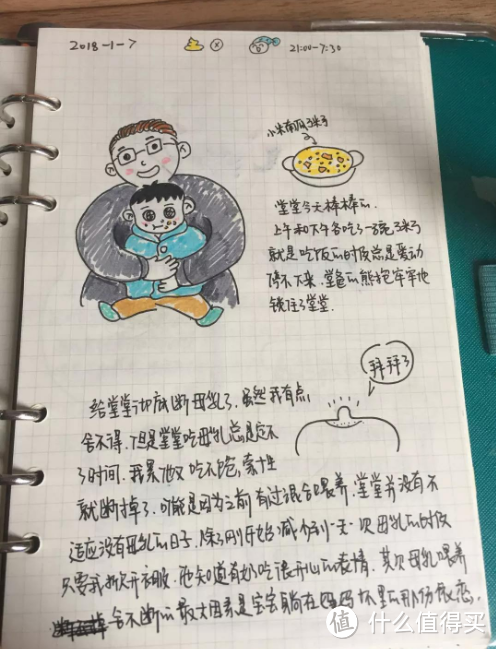 2018-1-7
21:00-7:30
小米南瓜粥
堂堂今天棒棒的
上午和下午各吃了一碗粥
就是吃饭的时候总是要动
停不下来,堂爸的熊抱牢牢地
锁住了堂堂.
拜拜了
给堂堂彻底断母乳了.虽然我有点
舍不得.但是堂堂吃母乳总是定不
了时间.我累他又吃不饱,索性
就断掉了.可能是因为之前有过混合喂养.堂堂并没有不
适应没有母乳的日子.除了刚开始减少到一天一次母乳的时候
只要我掀开衣服.他知道有奶吃很开心的表情.其实母乳喂养
舍不断的最大因素是宝宝躺在妈妈怀里的那份依恋.
值 什么值得买